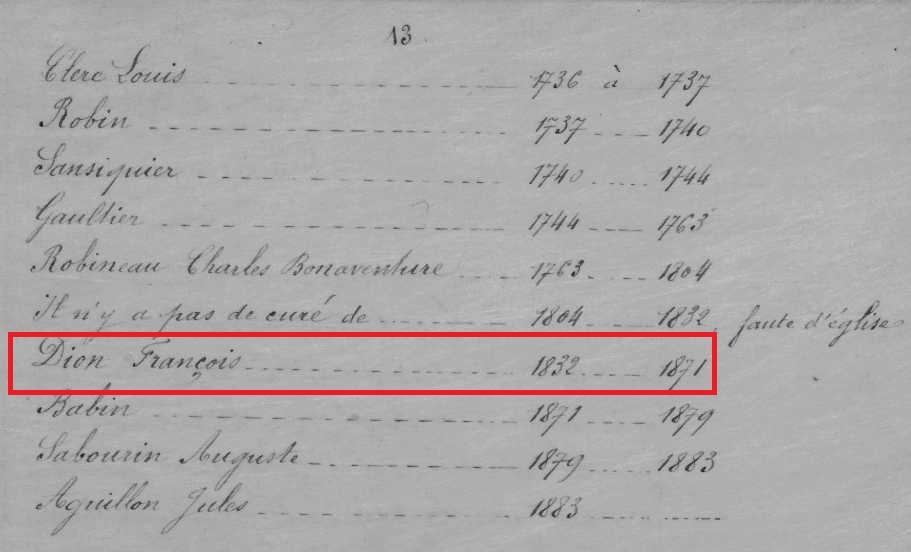 13
Clerc Louis 1736 à 1737
Robin 1737 1740
Sansiquier 1740 1744
Gaultier 1744 1763
Robineau Charles Bonaventure 1763 1804
Il n'y a pas de curé de 1804 1832, faute d'église
Dion François 1832 1871
Babin 1871 1879
Sabourin Auguste 1879 1883
Aguillon Jules 1883